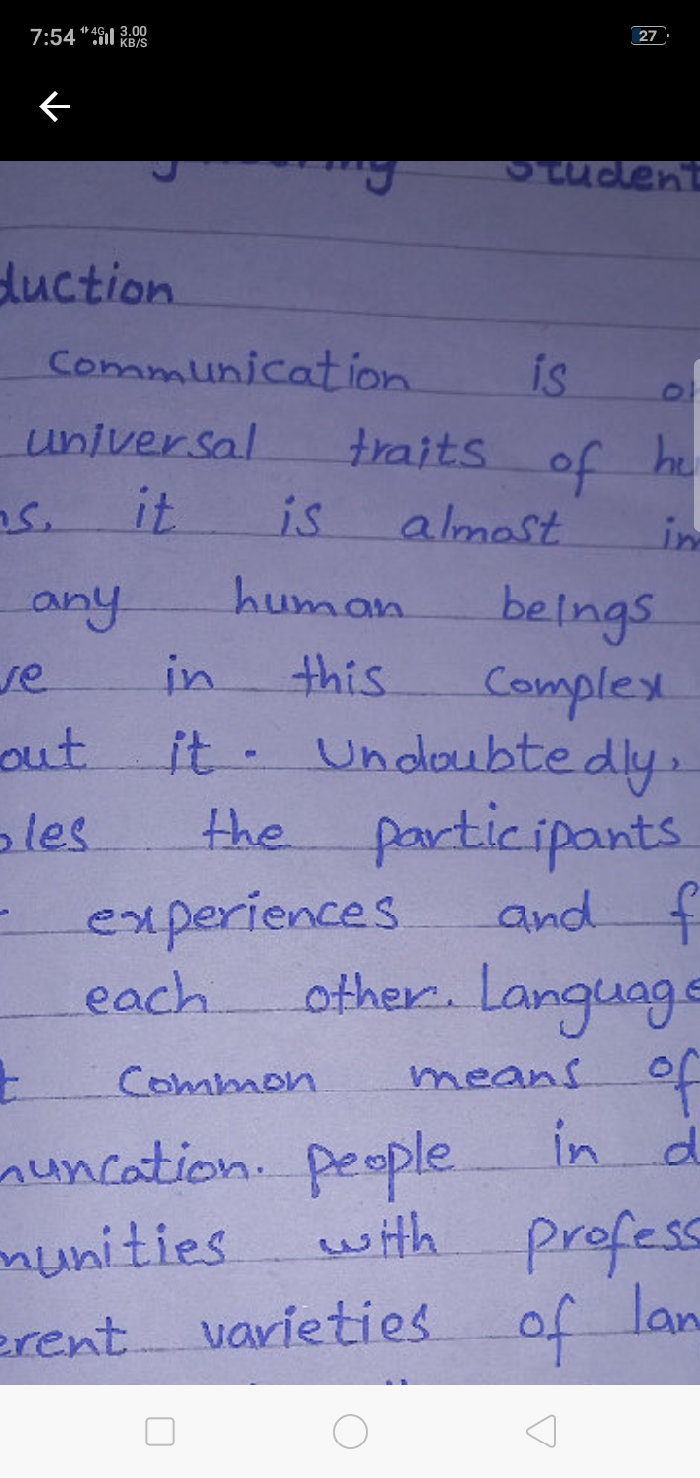 7:54 4G 3.00 KB/S 27
Student
duction
Communication is
universal traits of
it is almost
any human beings
ve in this complex
out it. Undoubtedly,
bles the participants
experiences and f
each other. Language
t common means of
nuncation. people in d
munities with profess
erent varieties of lan